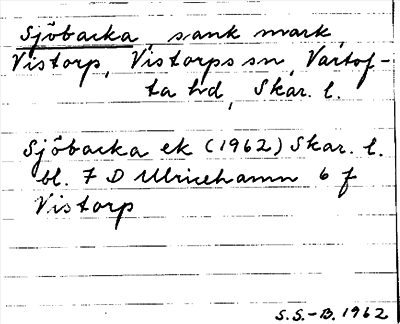 Sjöbacka, sank mark,
Vistorp, Vistorps sn, Vartof-
ta hd, Skar. l.
Sjöbacka ek (1962) Skar. l.
bl. 7 D Ulricehamn 6 f
Vistorp
S.S.-B. 1962